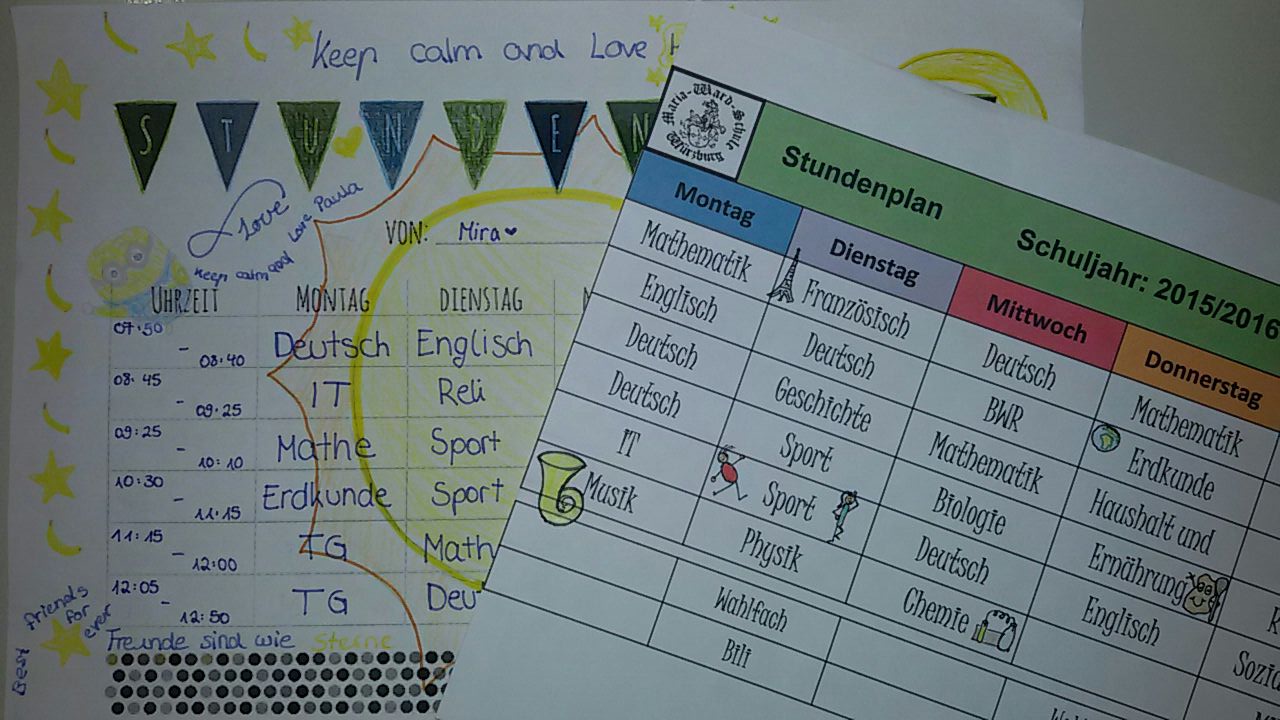 Keep calm and Love
STUNDEN
Love
Keep calm and Love Paula
VON: Mira
UHRZEIT MONTAG DIENSTAG
07:50 - 08:40 Deutsch Englisch
08:45 - 09:25 IT Reli
09:25 - 10:10 Mathe Sport
10:30 - 11:15 Erdkunde Sport
11:15 - 12:00 TG Math
12:05 - 12:50 TG Deu
Best
friends
for
ever
Freunde sind wie Sterne
Maria-Ward-Schule
Würzburg
Stundenplan
Schuljahr: 2015/2016
Montag Dienstag Mittwoch Donnerstag
Mathematik Französisch Deutsch Mathematik
Englisch Deutsch BWR Erdkunde
Deutsch Geschichte Mathematik Haushalt und
Deutsch Sport Biologie Ernährung
IT Sport Deutsch Englisch
Musik Physik Chemie
Wahlfach
Bili